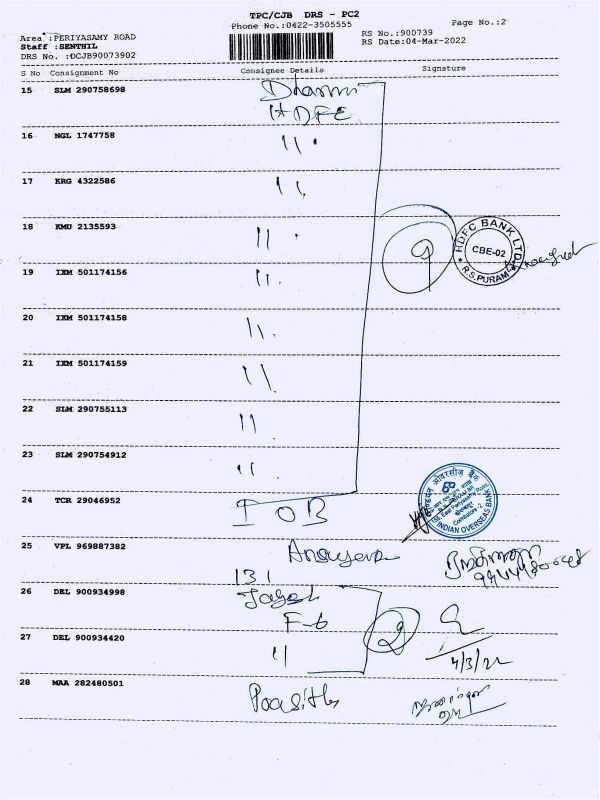 TPC/CJB DRS - PC2
Phone No.:0422-3505555
Page No.:2
Area :PERIYASAMY ROAD
RS No.:900739
Staff :SENTHIL
RS Date:04-Mar-2022
DRS No. :DCJB90073902
S No Consignment No Consignee Details Signature
15 SLM 290758698
HDFC
16 NGL 1747758 "
17 KRG 4322586 "
18 KMU 2135593 "
HDFC BANK LTD.
CBE-02
R.S.PURAM
19 IXM 501174156 "
20 IXM 501174158 "
21 IXM 501174159 "
22 SLM 290755113 "
23 SLM 290754912 "
24 TCR 29046952 IOB
इण्डियन ओवरसीज़ बैंक
Coimbatore - 2
INDIAN OVERSEAS BANK
25 VPL 969887382
131
26 DEL 900934998
F-6
9
2
27 DEL 900934420 "
4/3/22
28 MAA 282480501